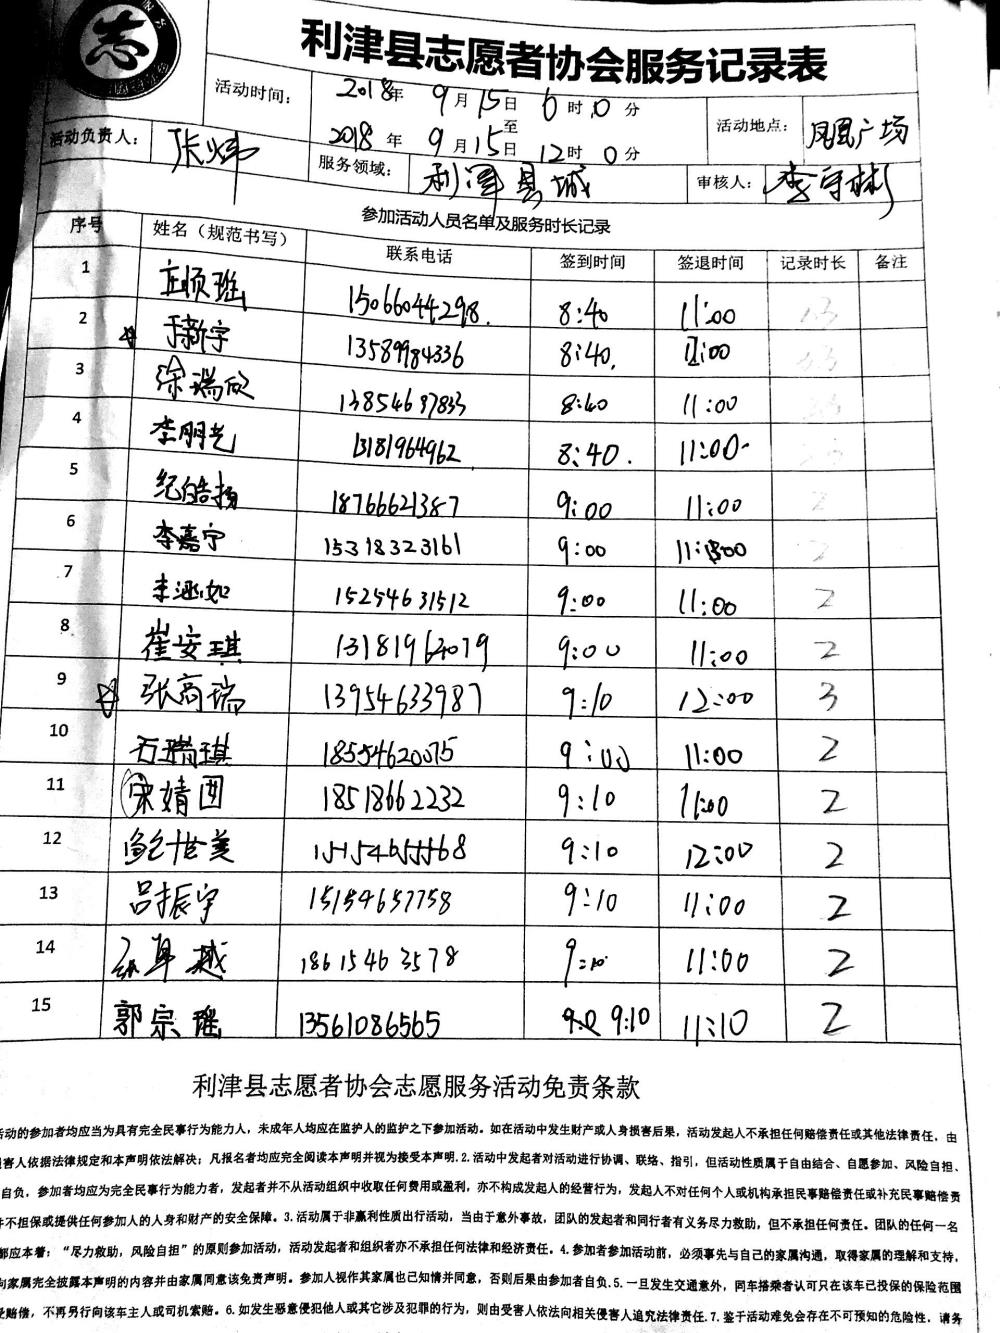 志
利津县志愿者协会服务记录表
活动时间: 2018年 9月15日 6时0分
至
2018年 9月15日 12时0分
活动地点: 凤凰广场
活动负责人: 张炜
服务领域: 利津县城
审核人: 李守彬
参加活动人员名单及服务时长记录
序号 姓名（规范书写） 联系电话 签到时间 签退时间 记录时长 备注
1 15066044298. 8:40 11:00
2 于新宇 13589984336 8:40. 11:00
3 徐瑞欣 13854697833 8:40 11:00
4 李朋艺 13181964962 8:40. 11:00
5 纪皓扬 18766621387 9:00 11:00 2
6 李嘉宁 15318323161 9:00 2
7 李涵如 15254631512 9:00 11:00 2
8 崔安琪 13181964079 9:00 11:00 2
9 张高瑞 13954633987 9:10 12:00 3
10 石瑞琪 18554620075 9:00 11:00 2
11 宋婧图 18518662232 9:10 11:00 2
12 15154655568 9:10 12:00 2
13 吕振宇 15154657758 9:10 11:00 2
14 卓越 18615463578 9:10 11:00 2
15 郭宗瑶 13561086565 9:10 11:10 2
利津县志愿者协会志愿服务活动免责条款
活动的参加者均应当为具有完全民事行为能力人，未成年人均应在监护人的监护之下参加活动。如在活动中发生财产或人身损害后果，活动发起人不承担任何赔偿责任或其他法律责任，由
害人依据法律规定和本声明依法解决；凡报名者均应完全阅读本声明并视为接受本声明.2.活动中发起者对活动进行协调、联络、指引，但活动性质属于自由结合、自愿参加、风险自担、
自负，参加者均应为完全民事行为能力者，发起者并不从活动组织中收取任何费用或盈利，亦不构成发起人的经营行为，发起人不对任何个人或机构承担民事赔偿责任或补充民事赔偿责
并不担保或提供任何参加人的人身和财产的安全保障。3.活动属于非赢利性质出行活动，当由于意外事故，团队的发起者和同行者有义务尽力救助，但不承担任何责任。团队的任何一名
都应本着：“尽力救助，风险自担”的原则参加活动，活动发起者和组织者亦不承担任何法律和经济责任。4.参加者参加活动前，必须事先与自己的家属沟通，取得家属的理解和支持，
向家属完全披露本声明的内容并由家属同意该免责声明。参加人视作其家属也已知情并同意，否则后果由参加者自负.5.一旦发生交通意外，同车搭乘者认可只在该车已投保的保险范围
受赔偿，不再另行向该车主人或司机索赔。6.如发生恶意侵犯他人或其它涉及犯罪的行为，则由受害人依法向相关侵害人追究法律责任.7.鉴于活动难免会存在不可预知的危险性，请务